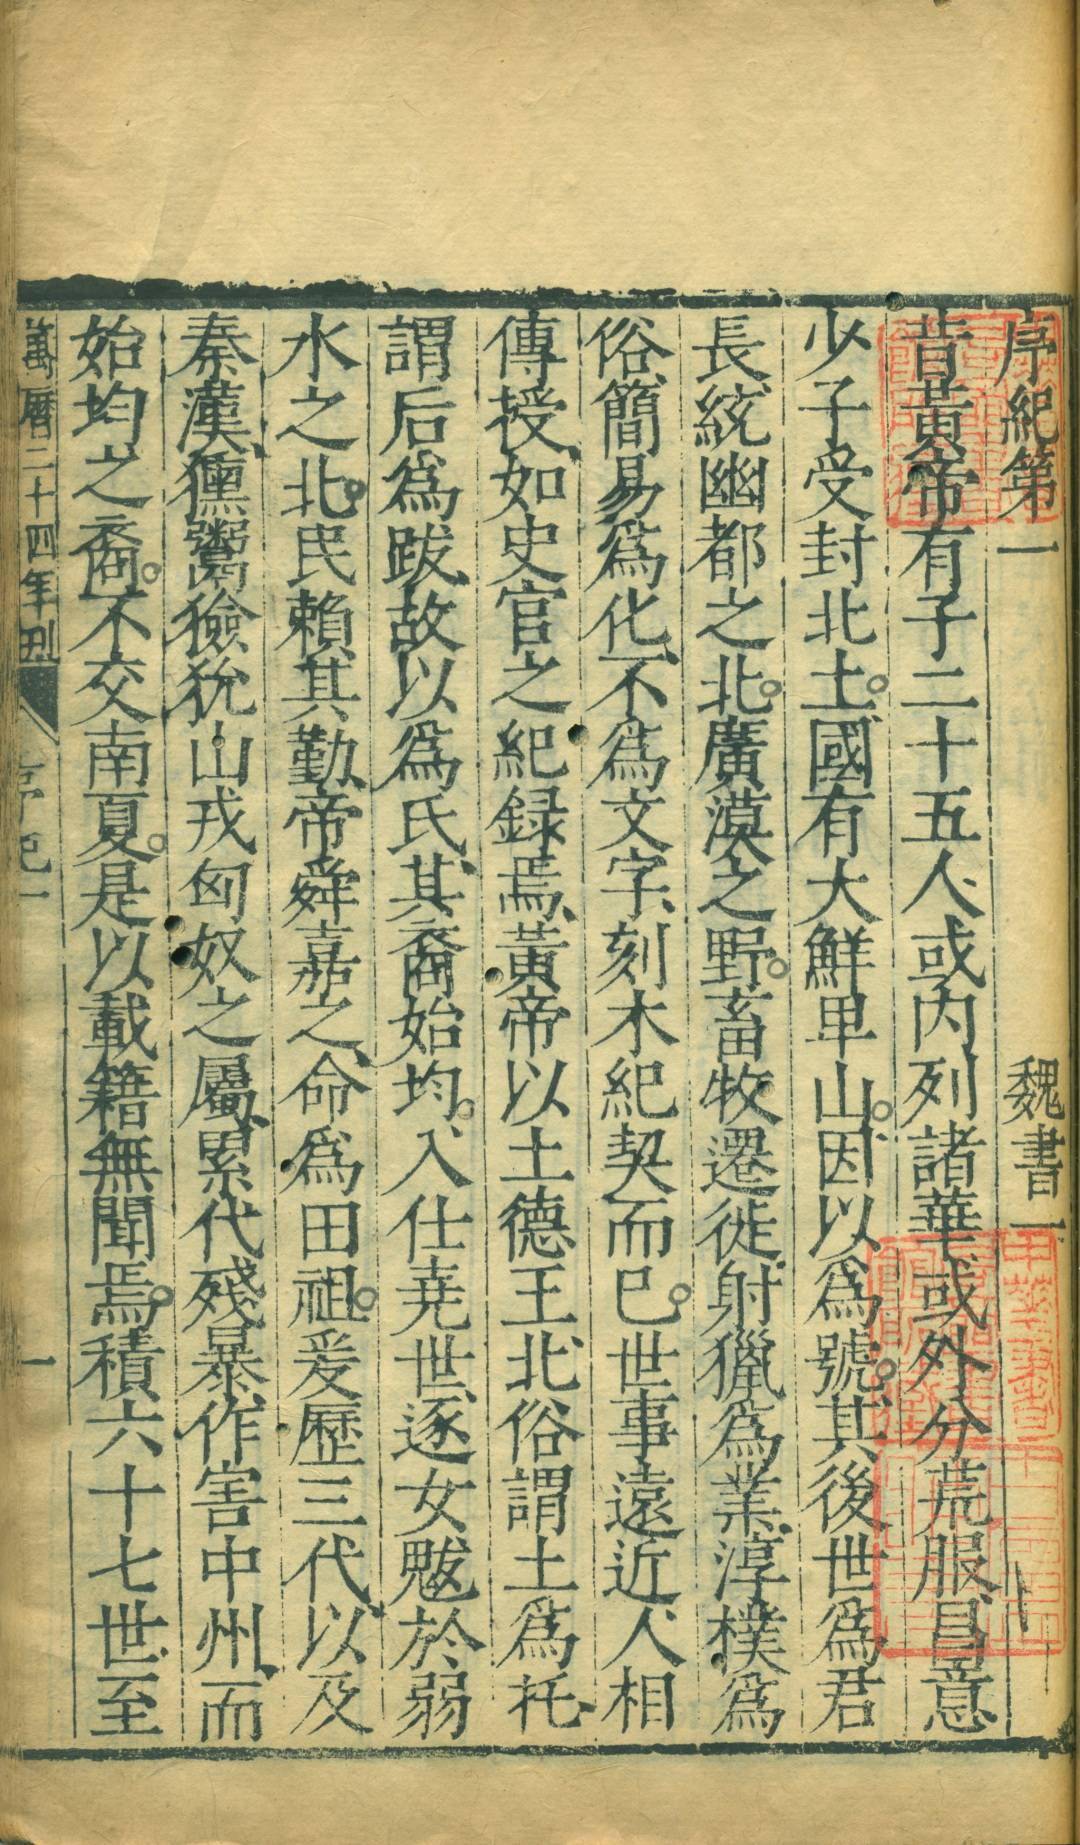 序紀第一 魏書一
昔黃帝有子二十五人或内列諸華或外分荒服昌意
少子受封北土國有大鮮卑山因以爲號其後世爲君
長統幽都之北廣漠之野畜牧遷徙射獵爲業淳樸爲
俗簡易爲化不爲文字刻木紀契而已世事遠近人相
傳授如史官之紀録焉黃帝以土德王北俗謂土爲托
謂后爲跋故以爲氏其裔始均入仕堯世逐女魃於弱
水之北民賴其勤帝舜嘉之命爲田祖爰歷三代以及
秦漢獯鬻獫狁山戎匈奴之屬累代殘暴作害中州而
始均之裔不交南夏是以載籍無聞焉積六十七世至
萬曆二十四年刊 序紀一 一